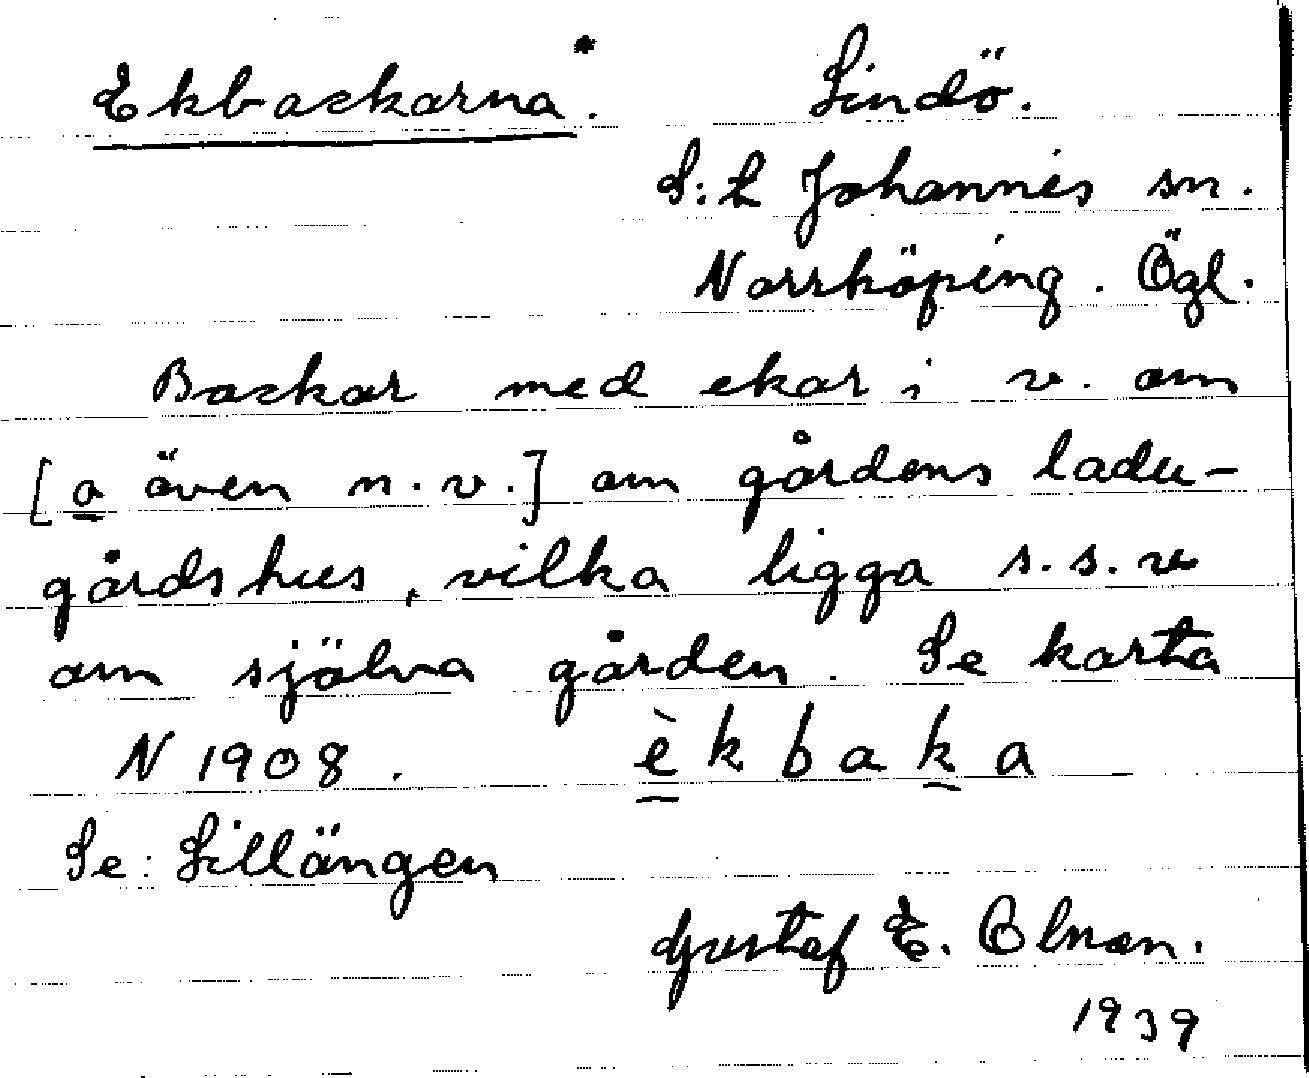 Ekbackarna*. Lindö.
S:t Johannis sn.
Norrköping. Ögl.
Backar med ekar i v. om
[o även n.v.] om gårdens ladu-
gårdshus, vilka ligga s.s.v
om själva gården. Se karta
N 1908. èkbaka
Se: Lillängen
Gustaf E. Olman.
1939